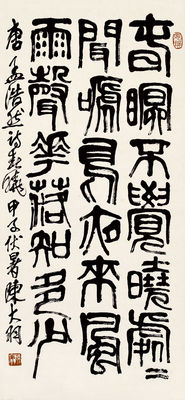 春瞑不覺曉處〻
聞嗁鳥夜來風
雨聲華落知多少
唐孟浩然詩春曉 甲子伏暑陳大羽